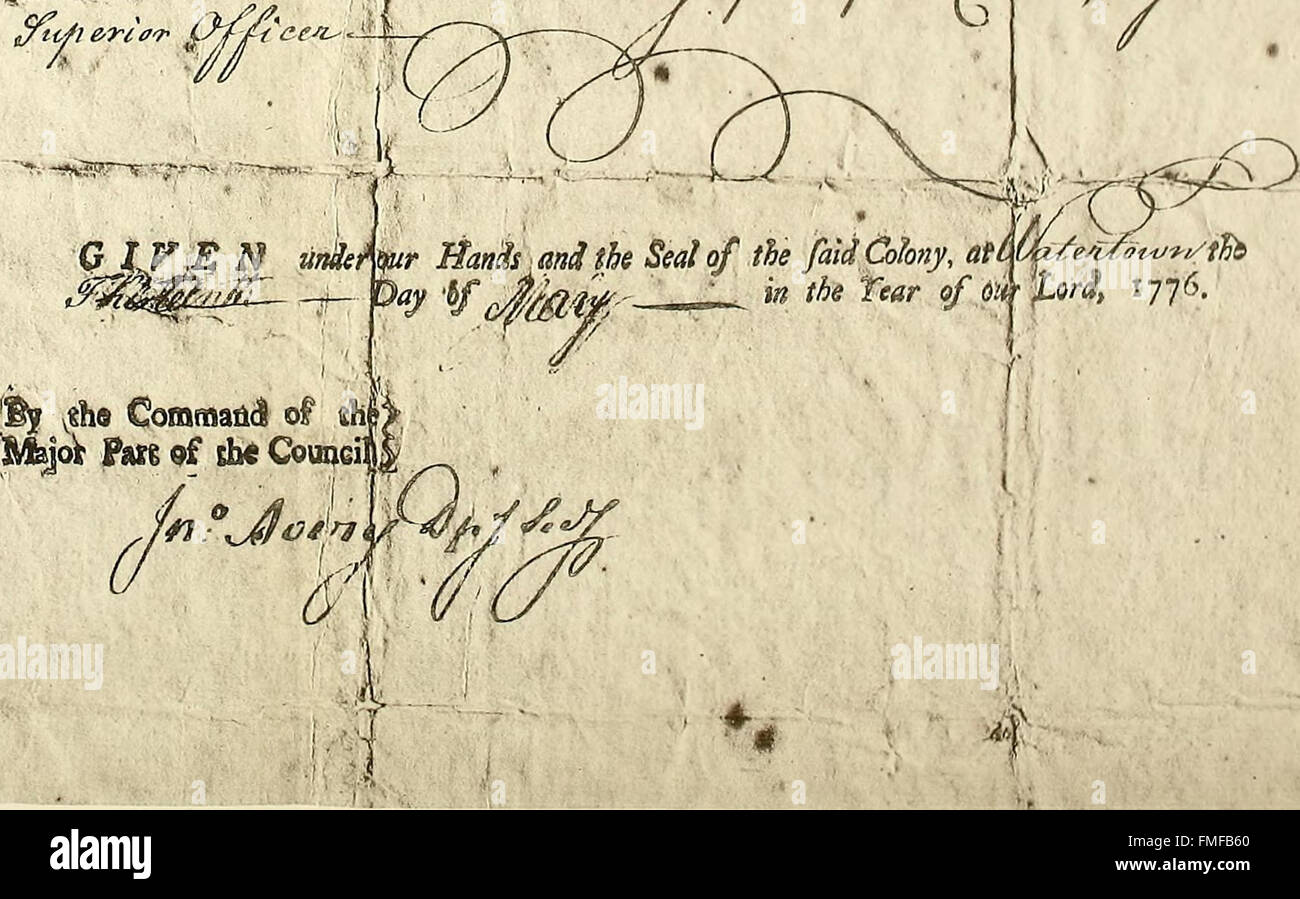 Superior Officer
GIVEN under our Hands and the Seal of the ſaid Colony, at Watertown the
Thirteenth Day of May in the Year of our Lord, 1776.
By the Command of the
Major Part of the Council,
Jnº Avery Dpy Secy
alamy
a
alamy stock photo
FMFB60
www.alamy.com